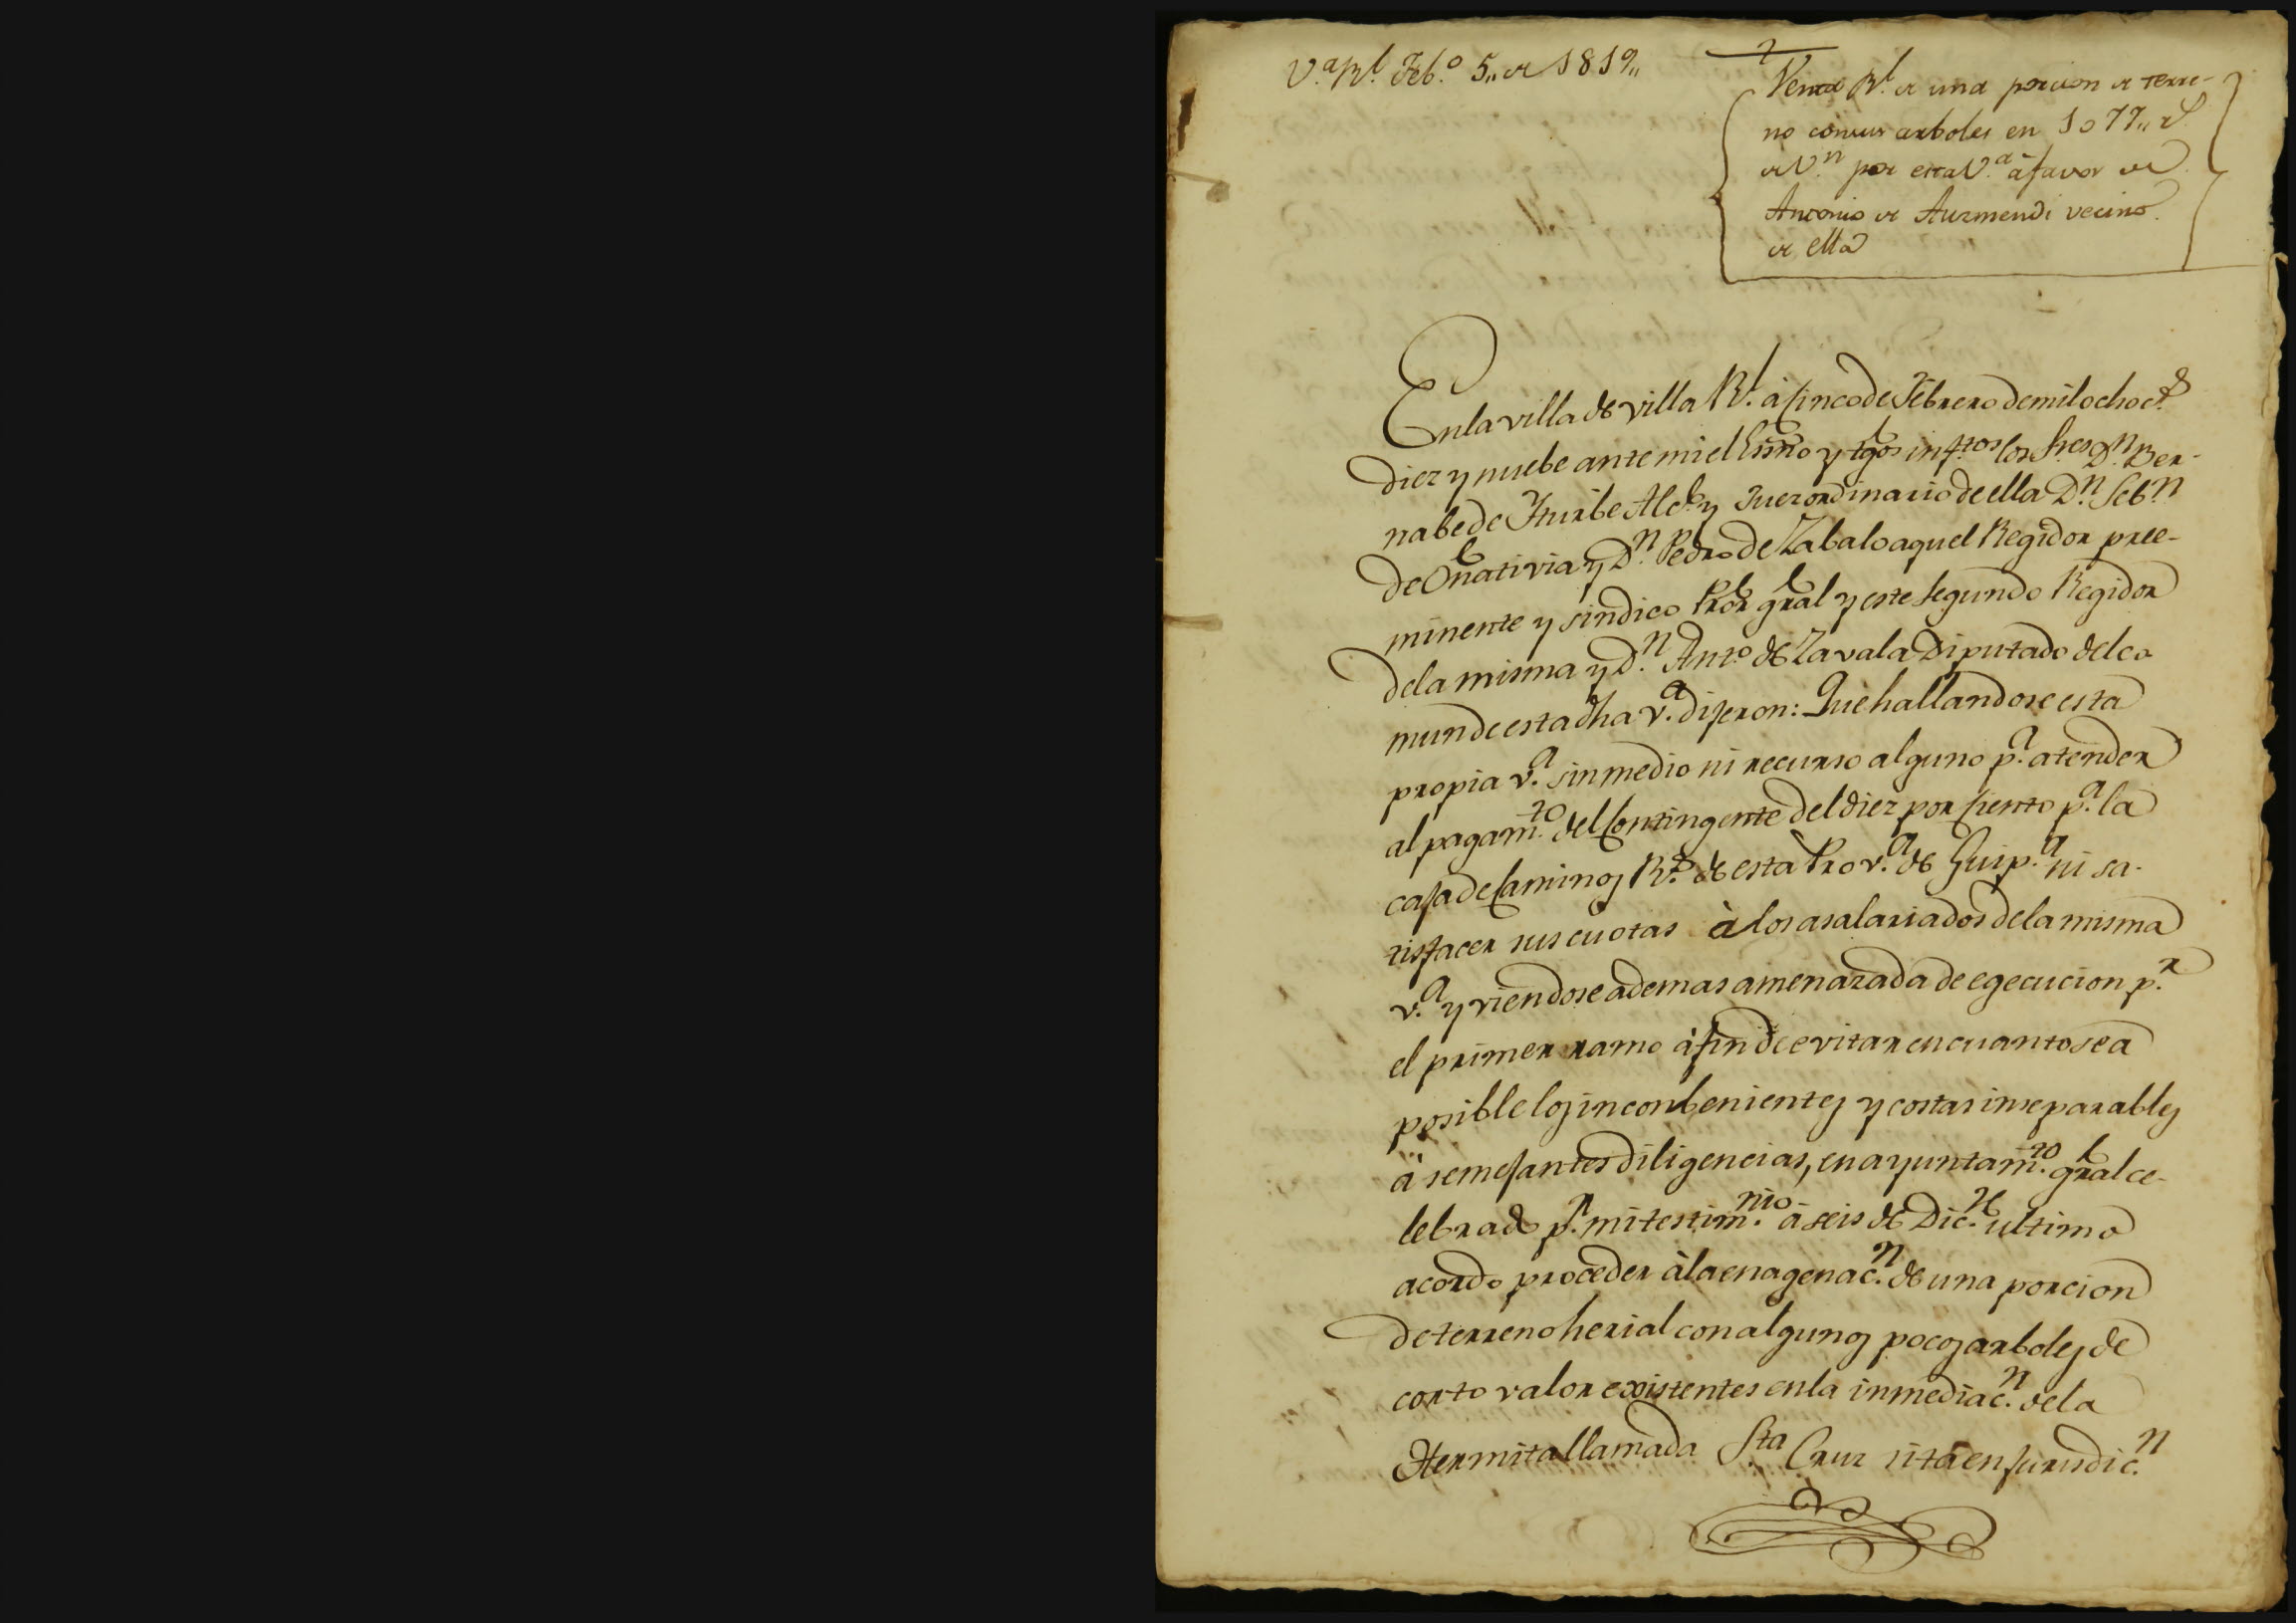 V.ª R.l Feb.º 5,, de 1819,,
Venta R.l de una porcion de terre-
no con sus arboles en 1077,, r.s
de V.n por esta V.ª à favor de
Antonio de Aurmendi vecino
de ella
En la villa de villa R.l à cinco de Febrero de mil ochoc.s
diez y nuebe ante mi el Essno y tgos inf.tos los S.res D.n Ber-
nabe de Yturbe Alc.e y Juez ordinario de ella D.n Seb.n
de Oñativia y D.n Pedro de Zabalo aquel Regidor pree-
minente y sindico Pror gral y este segundo Regidor
de la misma y D.n Ant.o de Zavala Diputado del co-
mun de esta dha v.ª dijeron: Que hallandose esta
propia v.ª sin medio ni recurso alguno p.ª atender
al pagam.to del contingente del diez por siento p.ª la
caja de caminos R.s de esta Prov.ª de Guip.ª ni sa-
tisfacer sus cuotas à los asalariados de la misma
v.ª y viendose ademas amenazada de egecucion p.r
el primer ramo à fin de evitar en cuanto sea
posible los inconbenientes y costas inseparables
à semejantes diligencias, en ayuntam.to gral ce-
lebrado p.r mi testim.nio à seis de Dic.e ultimo
acordo proceder à la enagenac.n de una porcion
de terreno herial con algunos pocos arboles de
corto valor existentes en la inmediac.n de la
Hermita llamada S.ta Cruz sita en jurisdic.n